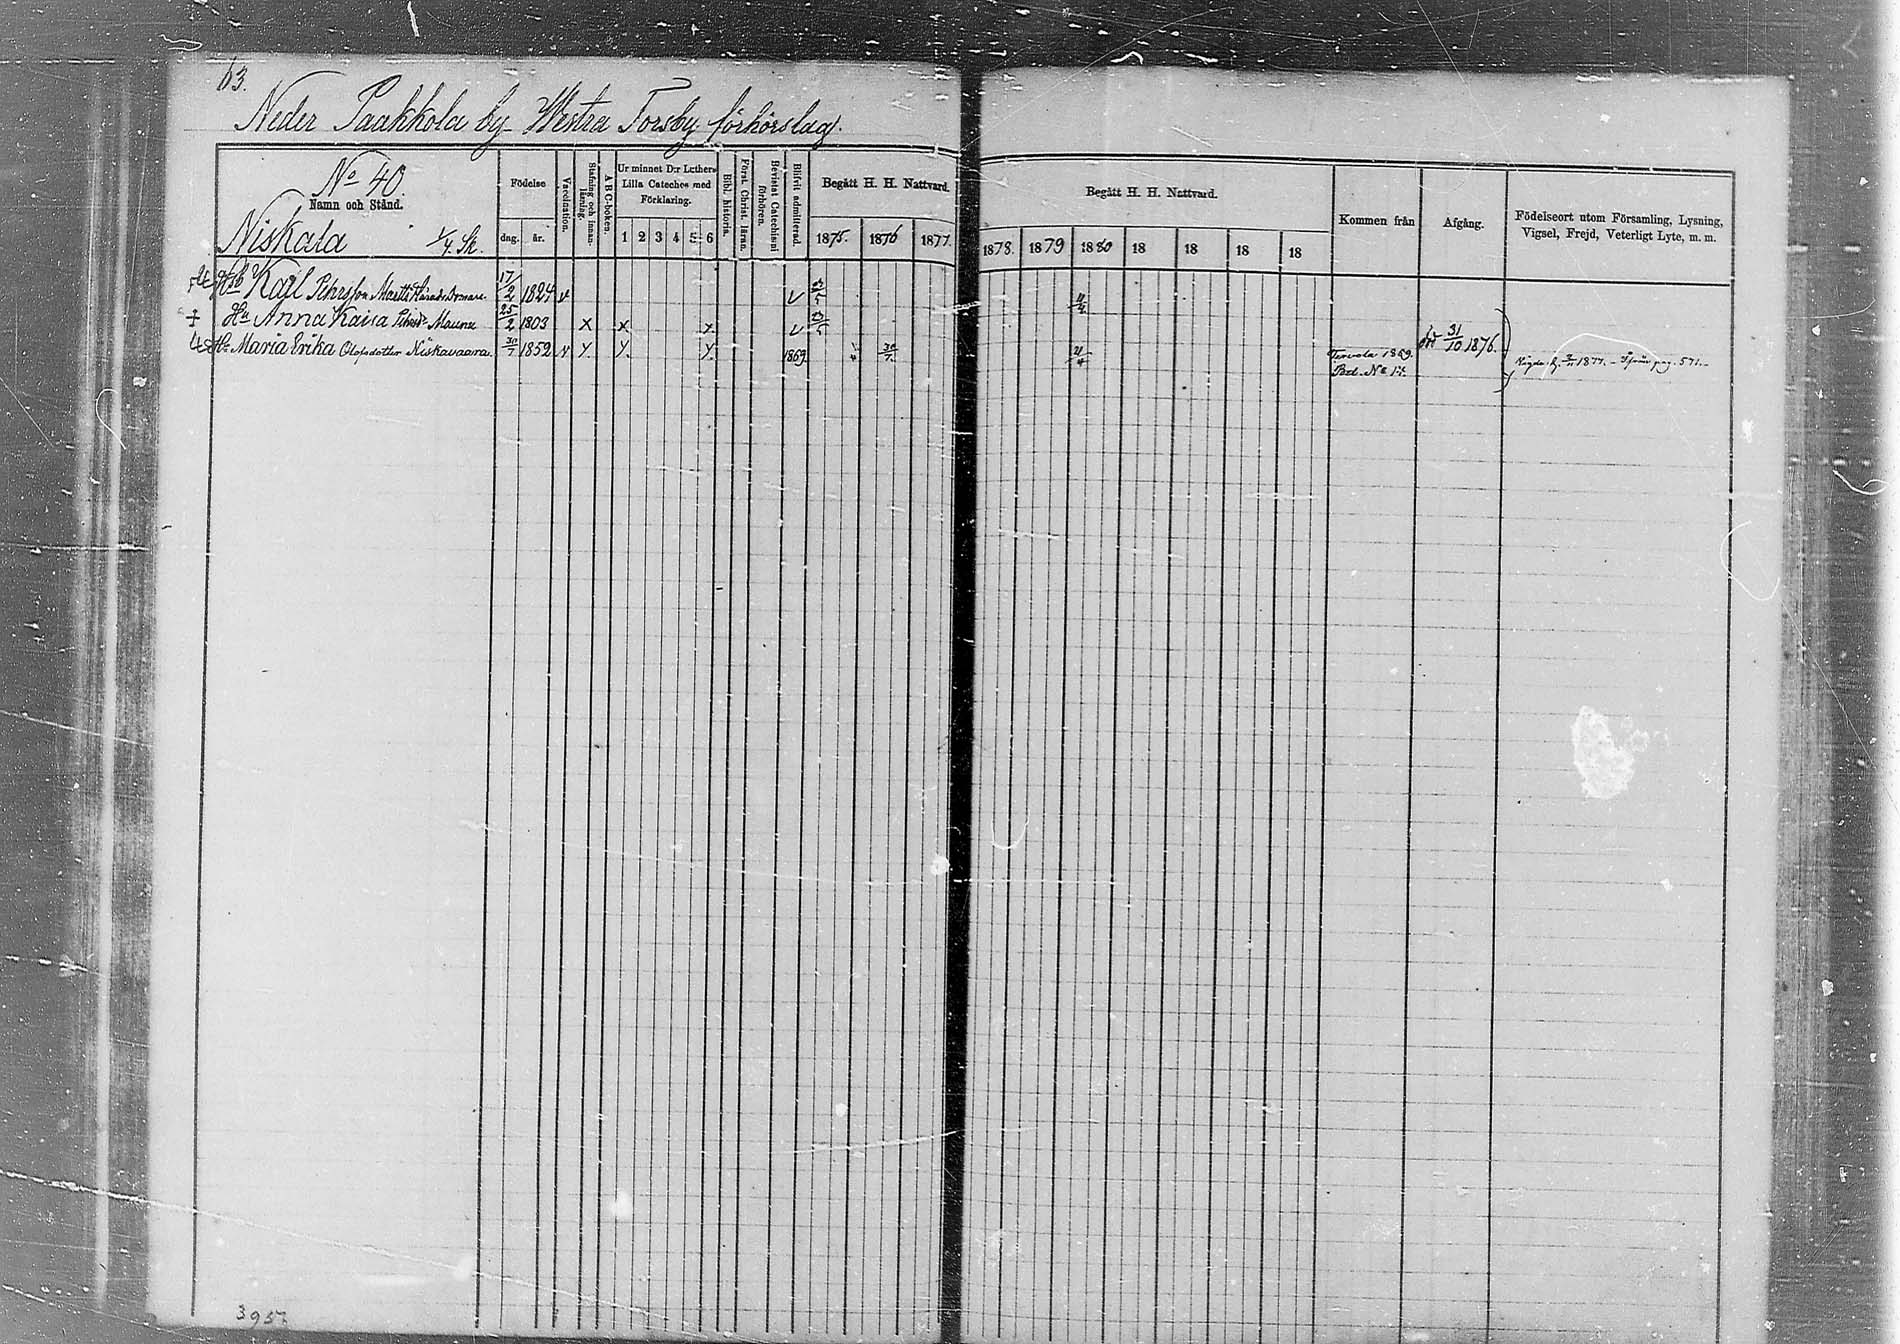 63.
Neder Paakkola by Westra Torsby förhörslag.
No 40.
Namn och Stånd.
Niskala 1/4 Sk.
Födelse
dag. år.
Vaccination.
Stafning och innan-läsning.
A B C-boken.
Ur minnet D:r Luthers Lilla Cateches med Förklaring.
1 2 3 4 5 6
Bibl. historia.
Först. Christ. läran.
Bevistat Catechismi förhören.
Blifvit admitterad.
Begått H. H. Nattvard.
1875. 1876 1877.
Begått H. H. Nattvard.
1878. 1879 1880 18 18 18 18
Kommen från
Afgång.
Födelseort utom Församling, Lysning, Vigsel, Frejd, Veterligt Lyte, m. m.
Karl Pehrsson Martti 17/2 1824 v v 23/5
† Hu Anna Kaisa Pehrsdr Mauna 25/2 1803 x x x v 23/5 död 31/10 1876.
Maria Erika Olofsdotter Niskavaara 30/7 1852 v Y Y Y 1869 30/7 Tervola 1869.
Bet. No 17.
1877. – Ifrån pag. 571.
3957